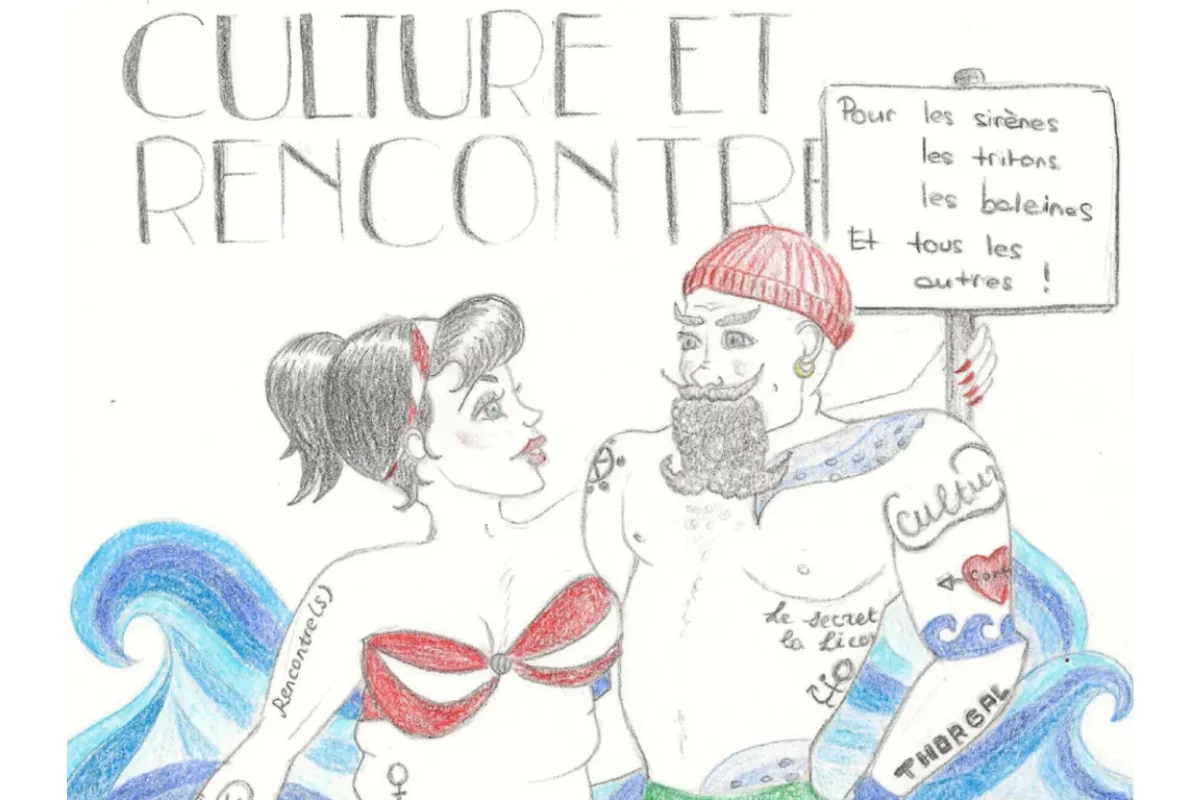 CULTURE ET
RENCONTRE
Pour les sirènes
les tritons
les baleines
Et tous les
autres !
Cultur
Rencontre(s)
Le secret
la Licor
THORGAL